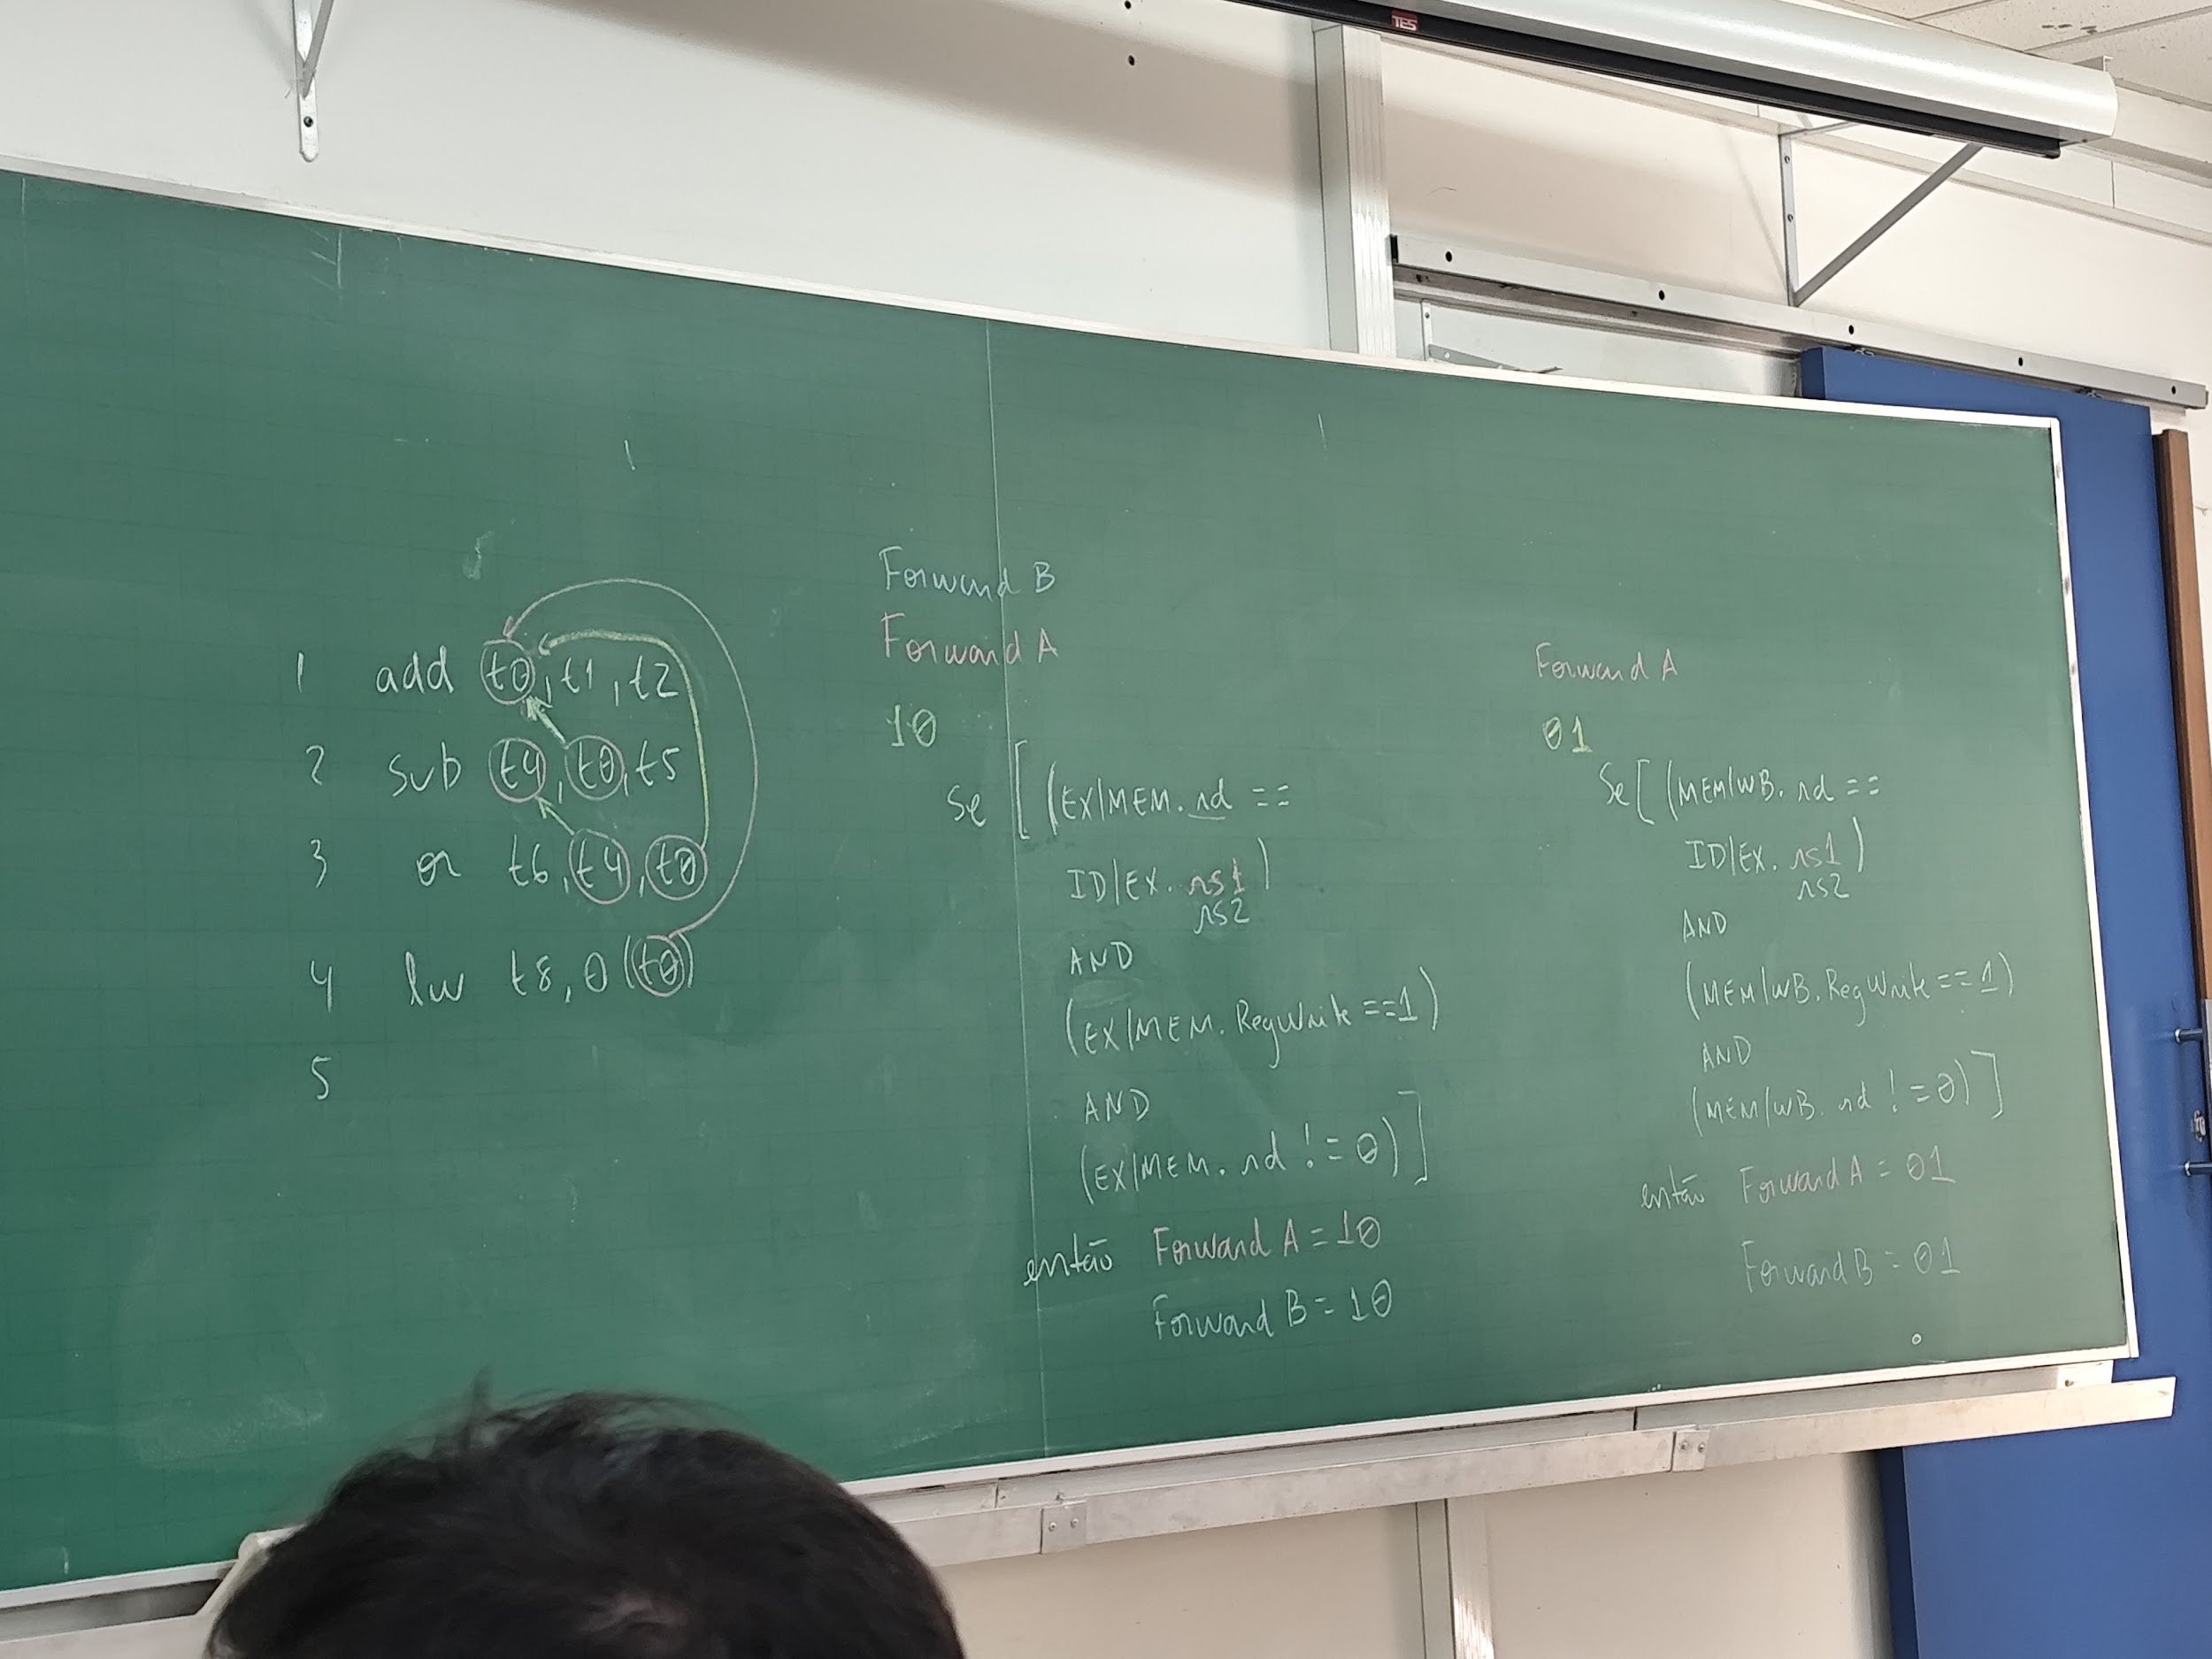 TES
1 add t0, t1, t2
2 sub t4, t0, t5
3 or t6, t4, t0
4 lw t8, 0(t0)
5
Forward B
Forward A
10
Se [(EX/MEM.rd ==
ID/EX.rs1)
rs2
AND
(EX/MEM.RegWrite ==1)
AND
(EX/MEM.rd != 0)]
então Forward A = 10
Forward B = 10
Forward A
01
Se [(MEM/WB.rd ==
ID/EX.rs1)
rs2
AND
(MEM/WB.RegWrite == 1)
AND
(MEM/WB.rd != 0)]
então Forward A = 01
Forward B = 01